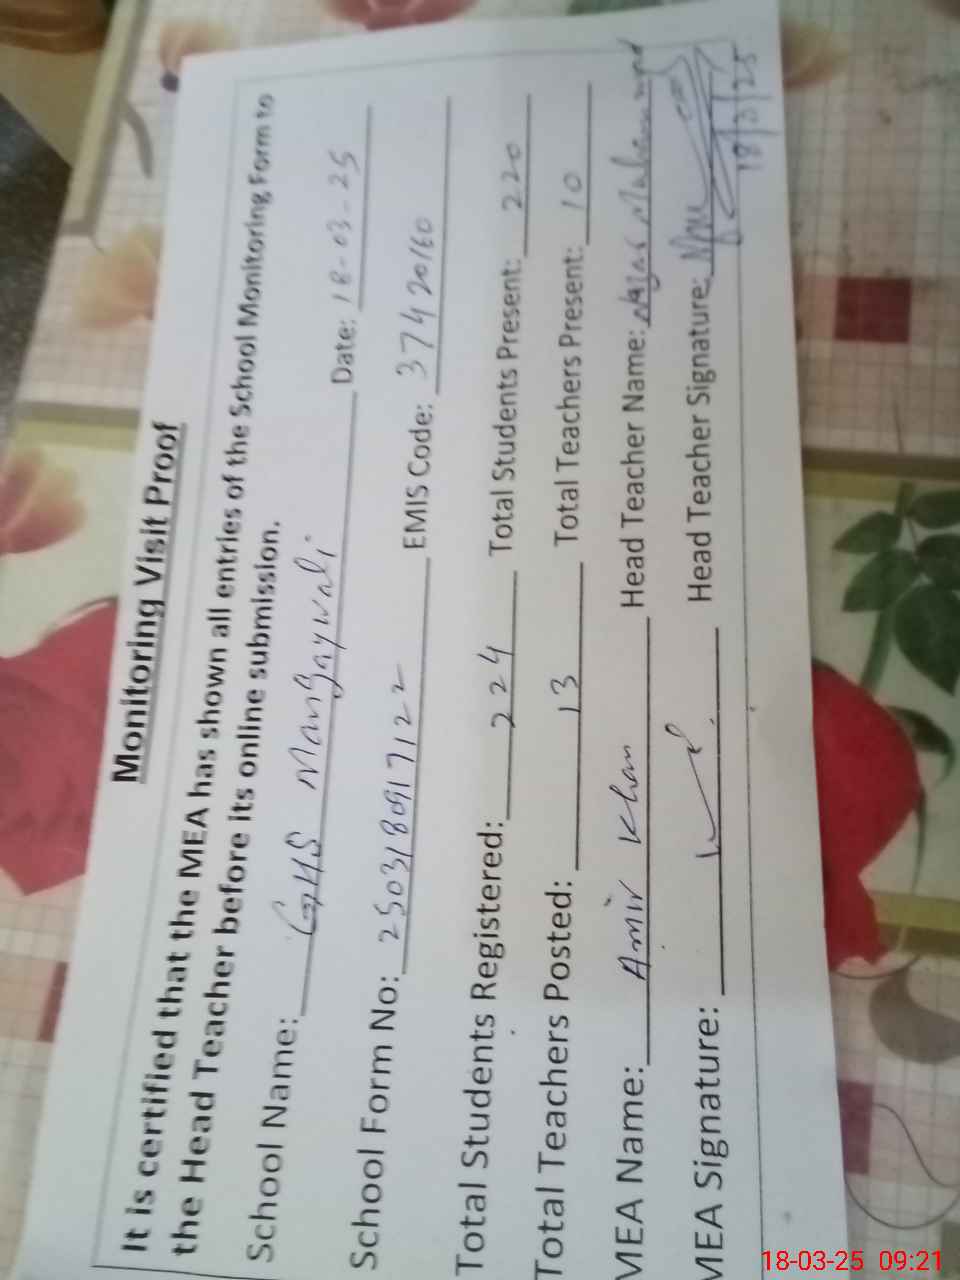 Monitoring Visit Proof
It is certified that the MEA has shown all entries of the School Monitoring Form to
the Head Teacher before its online submission.
School Name: GHS Mangaywali Date: 18-03-25
School Form No: 2503180917122 EMIS Code: 37420160
Total Students Registered: 224 Total Students Present: 220
Total Teachers Posted: 13 Total Teachers Present: 10
MEA Name: Amir Khan Head Teacher Name:
MEA Signature: Head Teacher Signature:
18/3/25
18-03-25 09:21